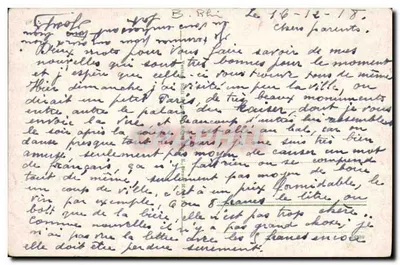 Le 16-12-18.
chers parents.
Deux mots pour vous faire savoir de mes
nouvelles qui sont très bonnes pour le moment
et j'espère que celle-ci vous trouve tous de même
Hier dimanche j'ai visité un peu la ville, on
dirait un petit Paris, de très beaux monuments
entre autre le palais du Kaiser, dont je vous
envoie la vue, et beaucoup d'autres
le soir après la au bal, car on
danse presque tout les jours, je me suis très bien
amusé seulement pas moyen de causer un mot
de français, ça ne fait rien on se comprend
tout de même, seulement pas moyen de boire
un coup de ville, c'est à un prix formidable, le
vin par exemple, 6 ou 8 francs le litre, on
boit que de la bière, elle n'est pas trop chère.
comme nouvelles il n'y a pas grand chose, je
n'ai pas vu la lettre avec les francs encore
elle doit être perdue surement.